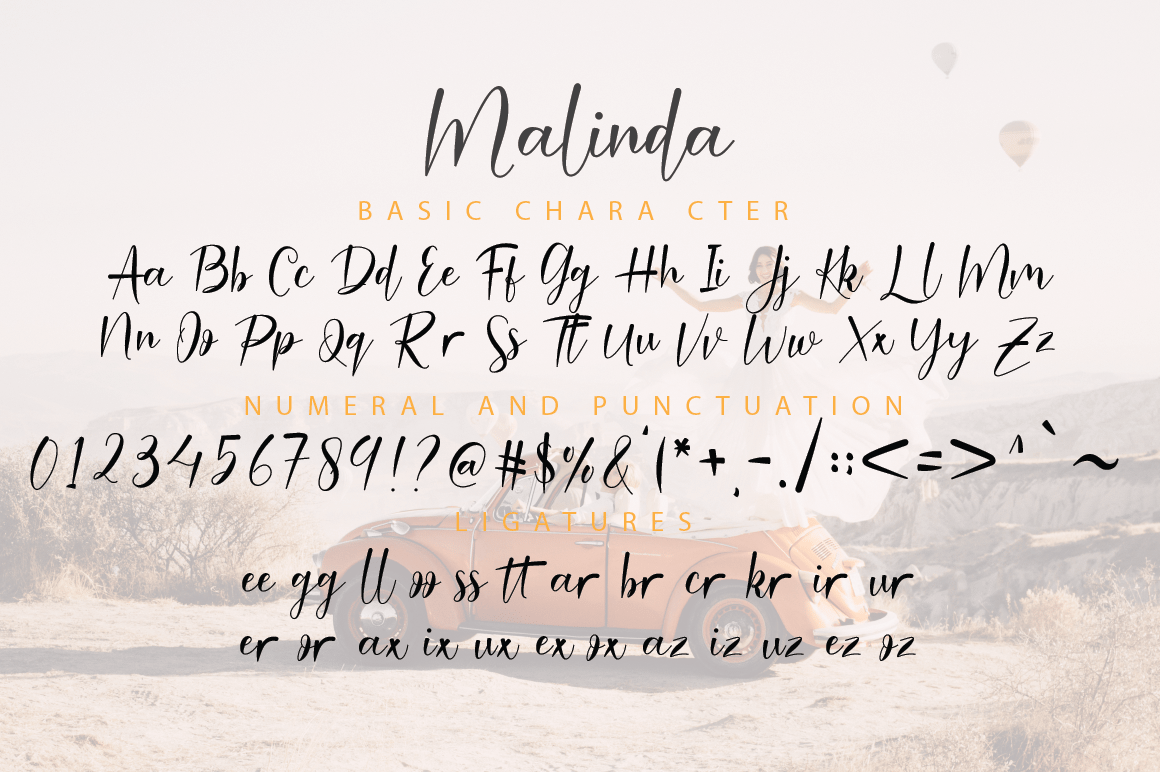 Malinda
BASIC CHARA CTER
Aa Bb Cc Dd Ee Ff Gg Hh Ii Jj Kk Ll Mm
Nn Oo Pp Qq Rr Ss Tt Uu Vv Ww Xx Yy Zz
NUMERAL AND PUNCTUATION
0123456789!?@#$%&'(*+,-./:;<=>^`~
LIGATURES
ee gg ll oo ss tt ar br cr kr ir ur
er or ax ix ux ex ox az iz uz ez oz